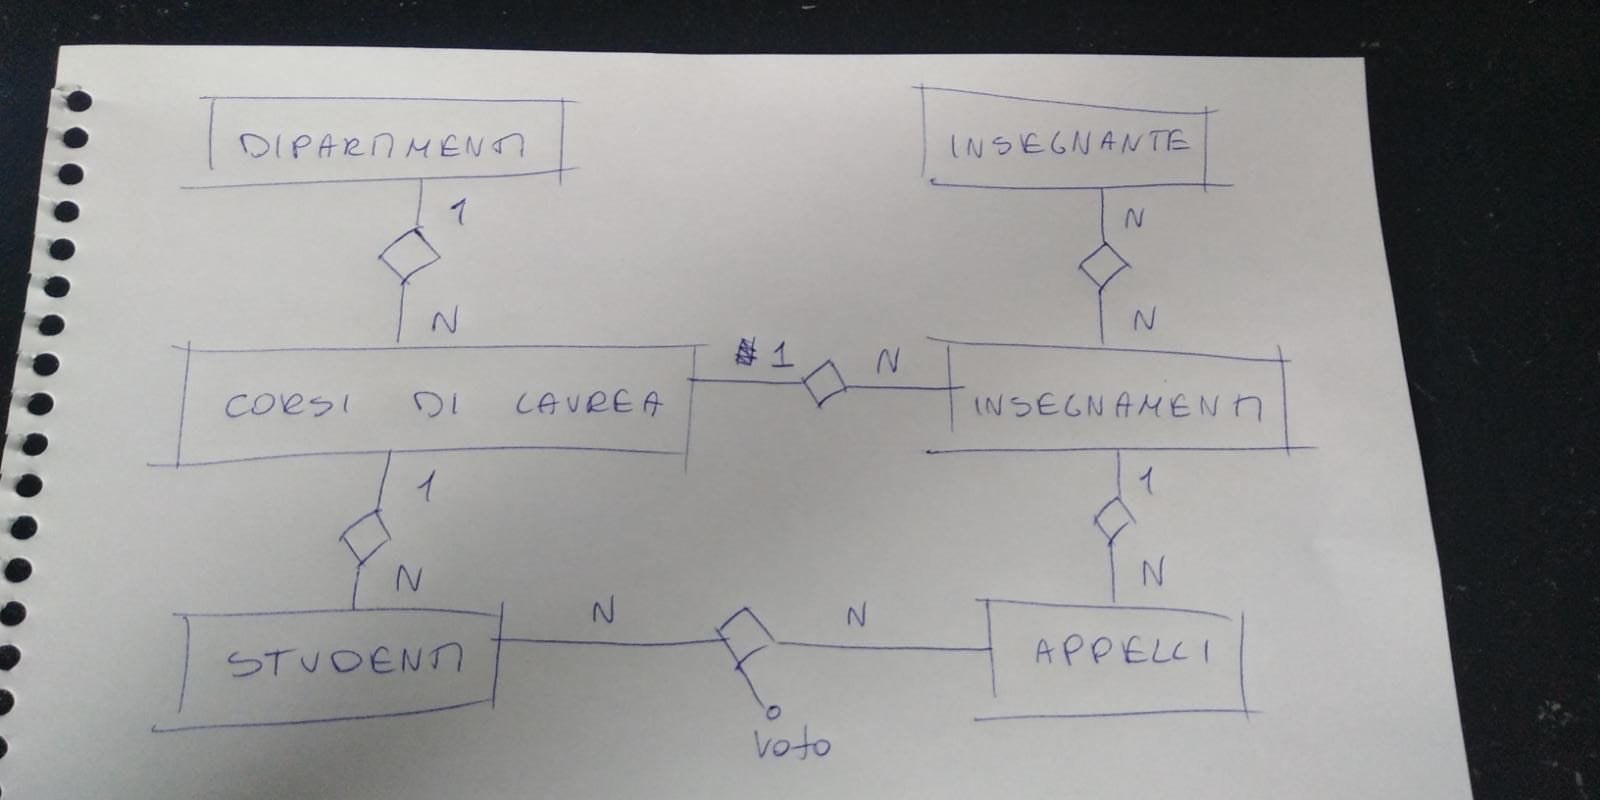 DIPARTIMENTI
INSEGNANTE
1
N
N
N
1
N
CORSI DI LAUREA
INSEGNAMENTI
1
1
N
N
N
N
STUDENTI
APPELLI
voto